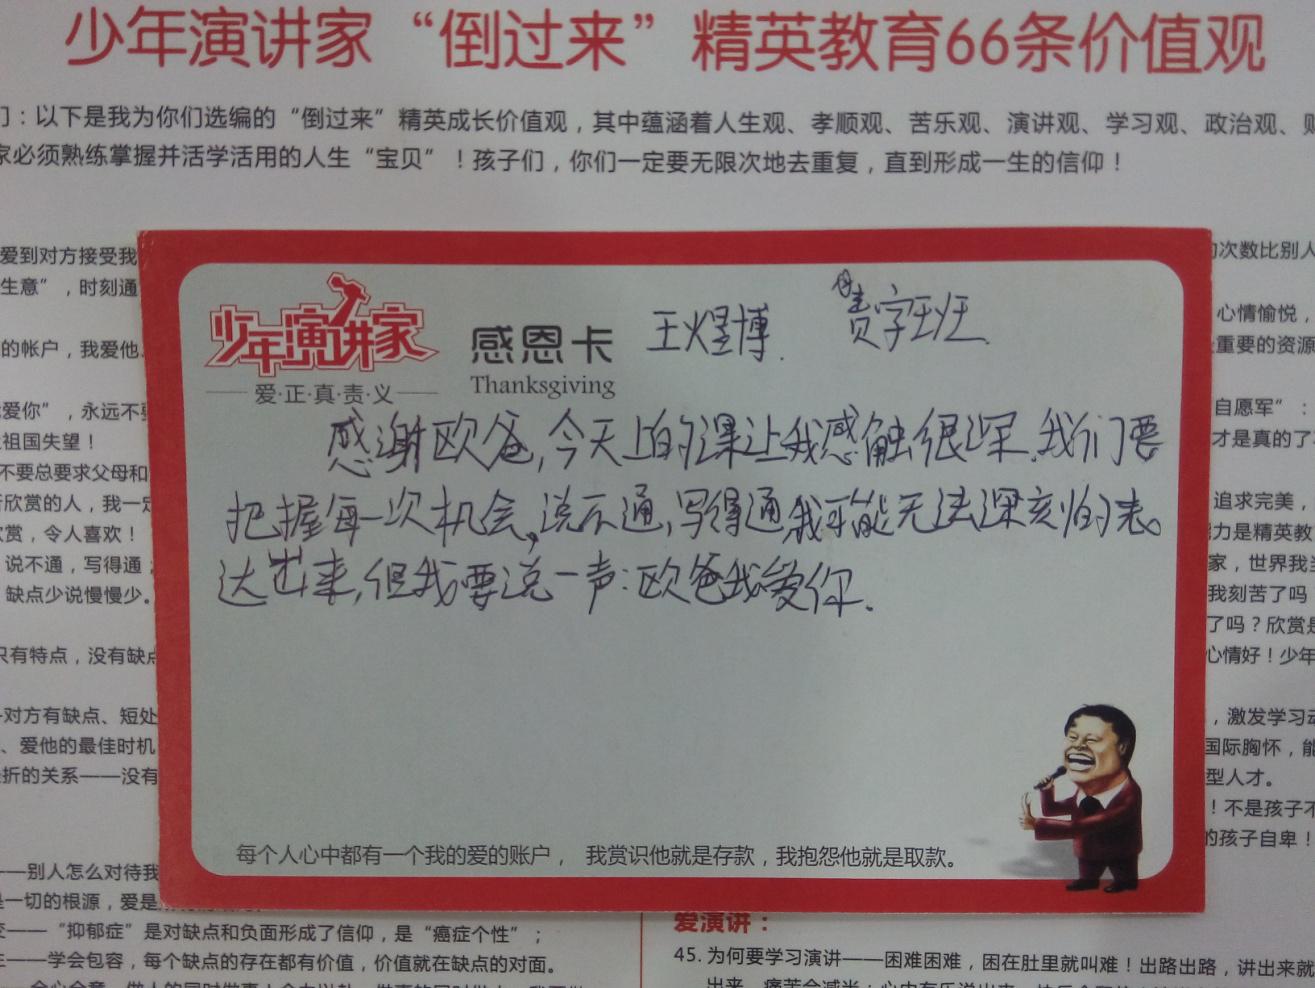 少年演讲家“倒过来”精英教育66条价值观
们：以下是我为你们选编的“倒过来”精英成长价值观，其中蕴涵着人生观、孝顺观、苦乐观、演讲观、学习观、政治观、财
家必须熟练掌握并活学活用的人生“宝贝”！孩子们，你们一定要无限次地去重复，直到形成一生的信仰！
爱到对方接受我
生意”，时刻通
的帐户，我爱他
爱你”，永远不
祖国失望！
不要总要求父母和
欣赏的人，我一定
欣赏，令人喜欢！
说不通，写得通；
缺点少说慢慢少。
只有特点，没有缺点
对方有缺点、短处
、爱他的最佳时机
挫折的关系——没有
——别人怎么对待我
是一切的根源，爱是
——“抑郁症”是对缺点和负面形成了信仰，是“癌症个性”；
——学会包容，每个缺点的存在都有价值，价值就在缺点的对面。
少年演讲家
爱·正·真·责·义
感恩卡
Thanksgiving
王煜博 责字班
感谢欧爸，今天上的课让我感触很深。我们要
把握每一次机会，说不通，写得通，我可能无法深刻的表
达出来，但我要说一声：欧爸我爱你。
每个人心中都有一个我的爱的账户， 我赏识他就是存款，我抱怨他就是取款。
的次数比别人
心情愉悦，
重要的资源
自愿军”：
才是真的了
追求完美，
能力是精英教
家，世界我
我刻苦了吗
了吗？欣赏是
心情好！少年
，激发学习动
国际胸怀，能
型人才。
！不是孩子不
的孩子自卑！
爱演讲：
45. 为何要学习演讲——困难困难，困在肚里就叫难！出路出路，讲出来就